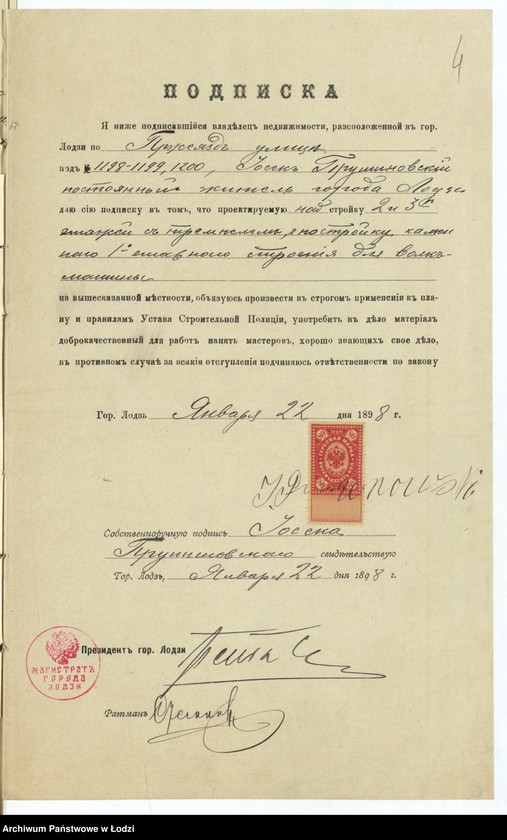 4
ПОДПИСКА
Я ниже подписавшійся владѣлец недвижимости, расположенной въ гор.
Лодзи по Пржеяздъ улицѣ
подъ № 1198-1199, 1200, Іосекъ
постоянный житель города Лодзи
даю сію подписку въ томъ, что проектируемую надстройку 2 и 3го
этажей съ и постройку камен
наго 1о этажнаго строенія для
машины
на вышесказанной мѣстности, обязуюсь произвести въ строгомъ примѣненіи къ пла-
ну и правиламъ Устава Строительной Полиціи, употребить въ дѣло матеріалъ
доброкачественный для работъ нанять мастеровъ, хорошо знающихъ свое дѣло,
въ противномъ случаѣ за всякія отступленія подчиняюсь отвѣтственности по закону
Гор. Лодзь Января 22 дня 1898 г.
Собственноручную подпись Іосека
свидѣтельствую
Гор. Лодзь, Января 22 дня 1898 г.
Президентъ гор. Лодзи
МАГИСТРАТЪ
ГОРОДА
ЛОДЗИ
Ратманъ
Archiwum Państwowe w Łodzi